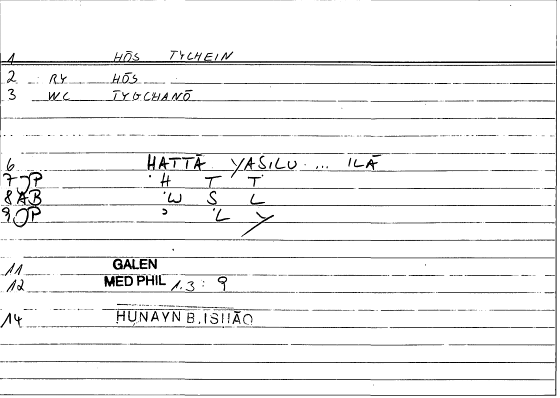 1 HŌS TYCHEIN
2 RY HŌS
3 WC TYGCHANŌ
6 HATTĀ YAṢILU ... ILĀ
7 JP Ḥ T T
8 AB W Ṣ L
9 JP ʾ L Y
11 GALEN
12 MED PHIL 1.3: 9
14 ḤUNAYN B. ISḤĀQ